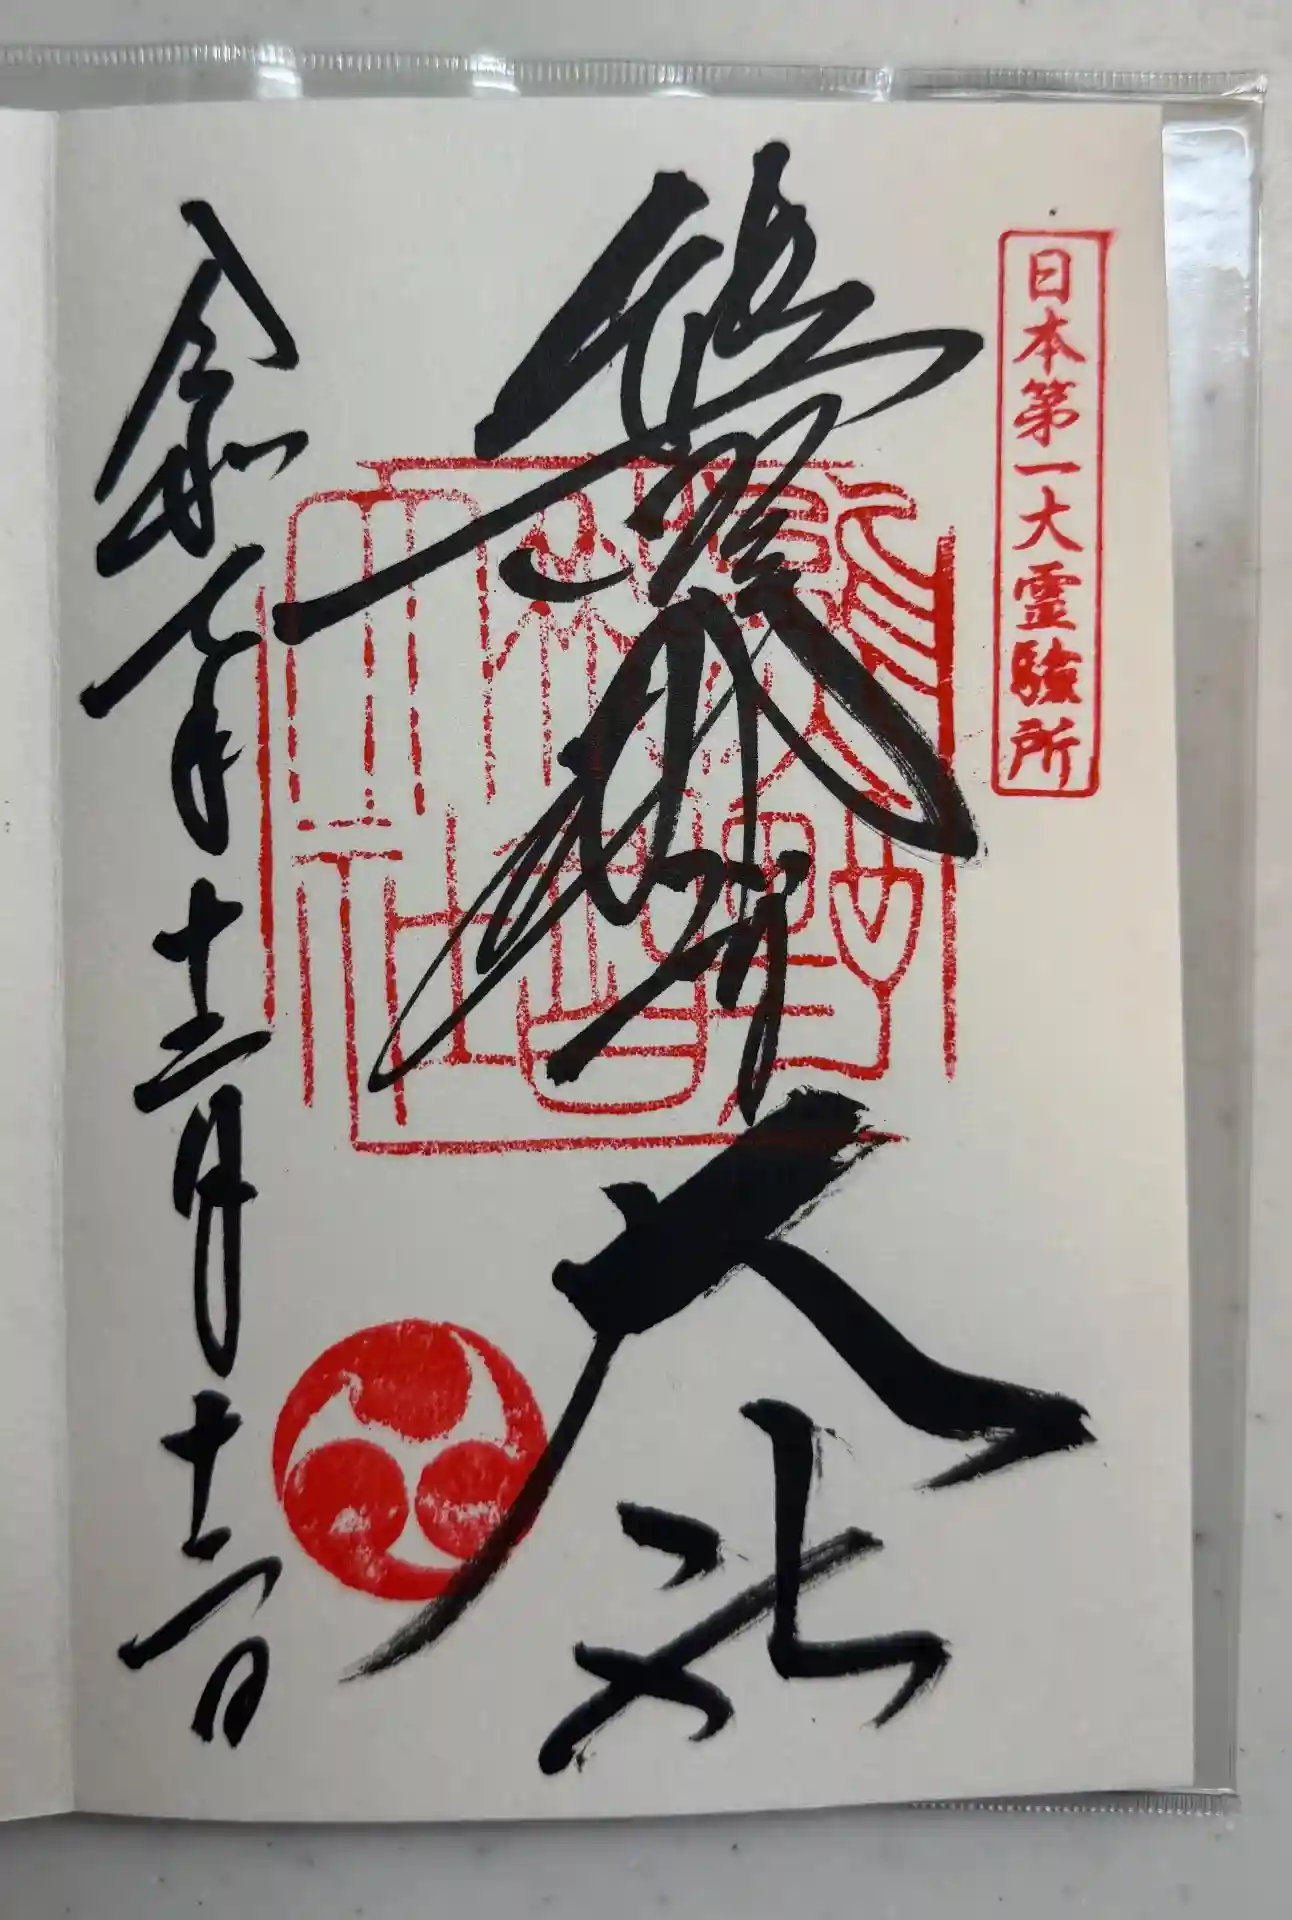 日本第一大霊験所
熊野那智大社
令和七年十二月十二日